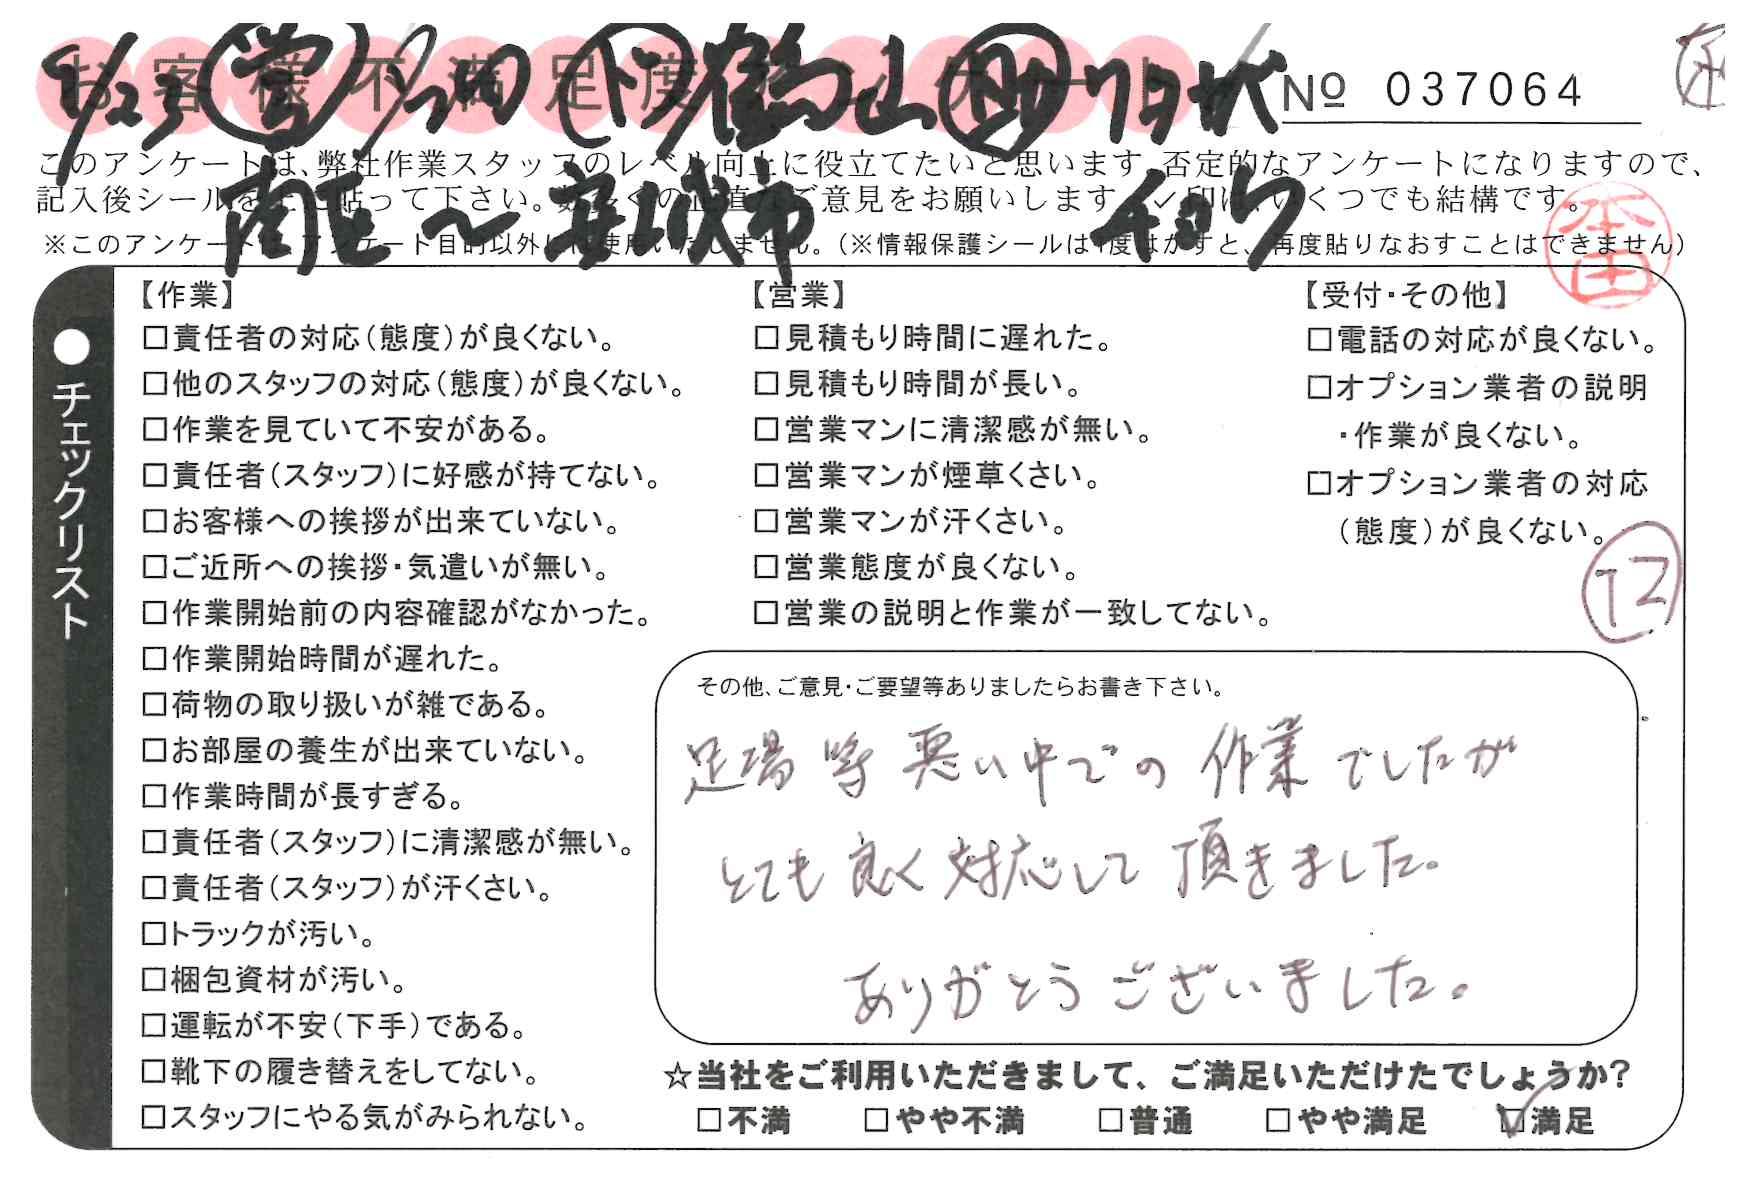 お客様不満足度アンケート
9/23 営 ド 鶴山 助 田代
№ 037064
このアンケートは、弊社作業スタッフのレベル向上に役立てたいと思います。否定的なアンケートになりますので、
記入後シールを上に貼って下さい。数多くの正直なご意見をお願いします。レ印は、いくつでも結構です。
南区〜安城市
※このアンケートは、アンケート目的以外には使用いたしません。(※情報保護シールは1度はがすと、再度貼りなおすことはできません)
本田
【作業】
□責任者の対応(態度)が良くない。
□他のスタッフの対応(態度)が良くない。
□作業を見ていて不安がある。
□責任者(スタッフ)に好感が持てない。
□お客様への挨拶が出来ていない。
□ご近所への挨拶・気遣いが無い。
□作業開始前の内容確認がなかった。
□作業開始時間が遅れた。
□荷物の取り扱いが雑である。
□お部屋の養生が出来ていない。
□作業時間が長すぎる。
□責任者(スタッフ)に清潔感が無い。
□責任者(スタッフ)が汗くさい。
□トラックが汚い。
□梱包資材が汚い。
□運転が不安(下手)である。
□靴下の履き替えをしてない。
□スタッフにやる気がみられない。
●チェックリスト
【営業】
□見積もり時間に遅れた。
□見積もり時間が長い。
□営業マンに清潔感が無い。
□営業マンが煙草くさい。
□営業マンが汗くさい。
□営業態度が良くない。
□営業の説明と作業が一致してない。
【受付・その他】
□電話の対応が良くない。
□オプション業者の説明
・作業が良くない。
□オプション業者の対応
(態度)が良くない。
その他、ご意見・ご要望等ありましたらお書き下さい。
足場等悪い中での作業でしたが
とても良く対応して頂きました。
ありがとうございました。
☆当社をご利用いただきまして、ご満足いただけたでしょうか?
□不満 □やや不満 □普通 □やや満足 ☑満足